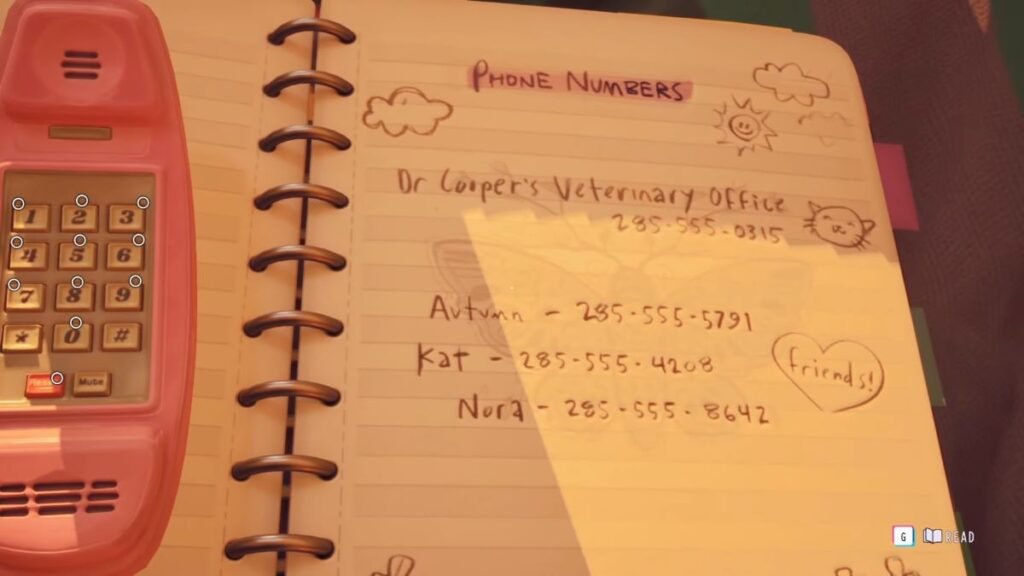 PHONE NUMBERS
Dr Cooper's Veterinary Office
285-555-0315
Autumn - 285-555-5791
Kat - 285-555-4208
Nora - 285-555-8642
friends!
1 2 3
4 5 6
7 8 9
* 0 #
Mute
G READ